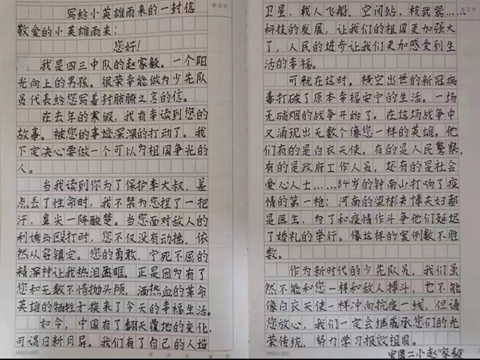 写给小英雄雨来的一封信
敬爱的小英雄雨来：
您好！
我是四三中队的赵家毅。一个阳
光向上的男孩。很荣幸能做为少先队
员代表给您写着封朦朦之言的信。
在去年的寒假，我有幸读到您的
故事。被您的事迹深深的打动了。我
下定决心要做一个可以为祖国争光的
人。
当我读到你为了保护李大叔，差
点丢了性命时，我不禁为您捏了一把
汗，鼻尖一阵酸楚。当您面对敌人的
利诱与殴打时，您不仅没有动摇，依
然从容镇定。您的勇敢，宁死不屈的
精神让我热泪盈眶。正是因为有了
您和无数不惜抛头颅，洒热血的革命
英雄的牺牲才换来了今天的幸福生活。
如今，中国有了翻天覆地的变化
可谓日新月异。我们有了自己的人造
卫星，载人飞船，空间站，核武器……
科技的发展，让我们的祖国更加强大
了，人民的进步让我们更加感受到生
活的幸福。
可就在这时。横空出世的新冠病
毒打破了原本幸福安宁的生活。一场
无硝烟的战争开始了。在这场战争中
又涌现出无数个像您一样的英雄。他
们有的是白衣天使，有的是人民警察，
有的是政府工作人员，还有的是社会
爱心人士……84岁的钟南山打响了疫
情的第一枪；河南的梁彬夫博夫妇都
是医生，为了和疫情作斗争他们延迟
了婚礼的举行。像这样的案例数不胜
数。
作为新时代的少先队员，我们虽
然不能和您一样和敌人搏斗，也不能
像白衣天使一样冲向抗疫一线，但请
您放心，我们一定会继承您们的光
荣传统，努力学习报效祖国。
实图二小赵家毅